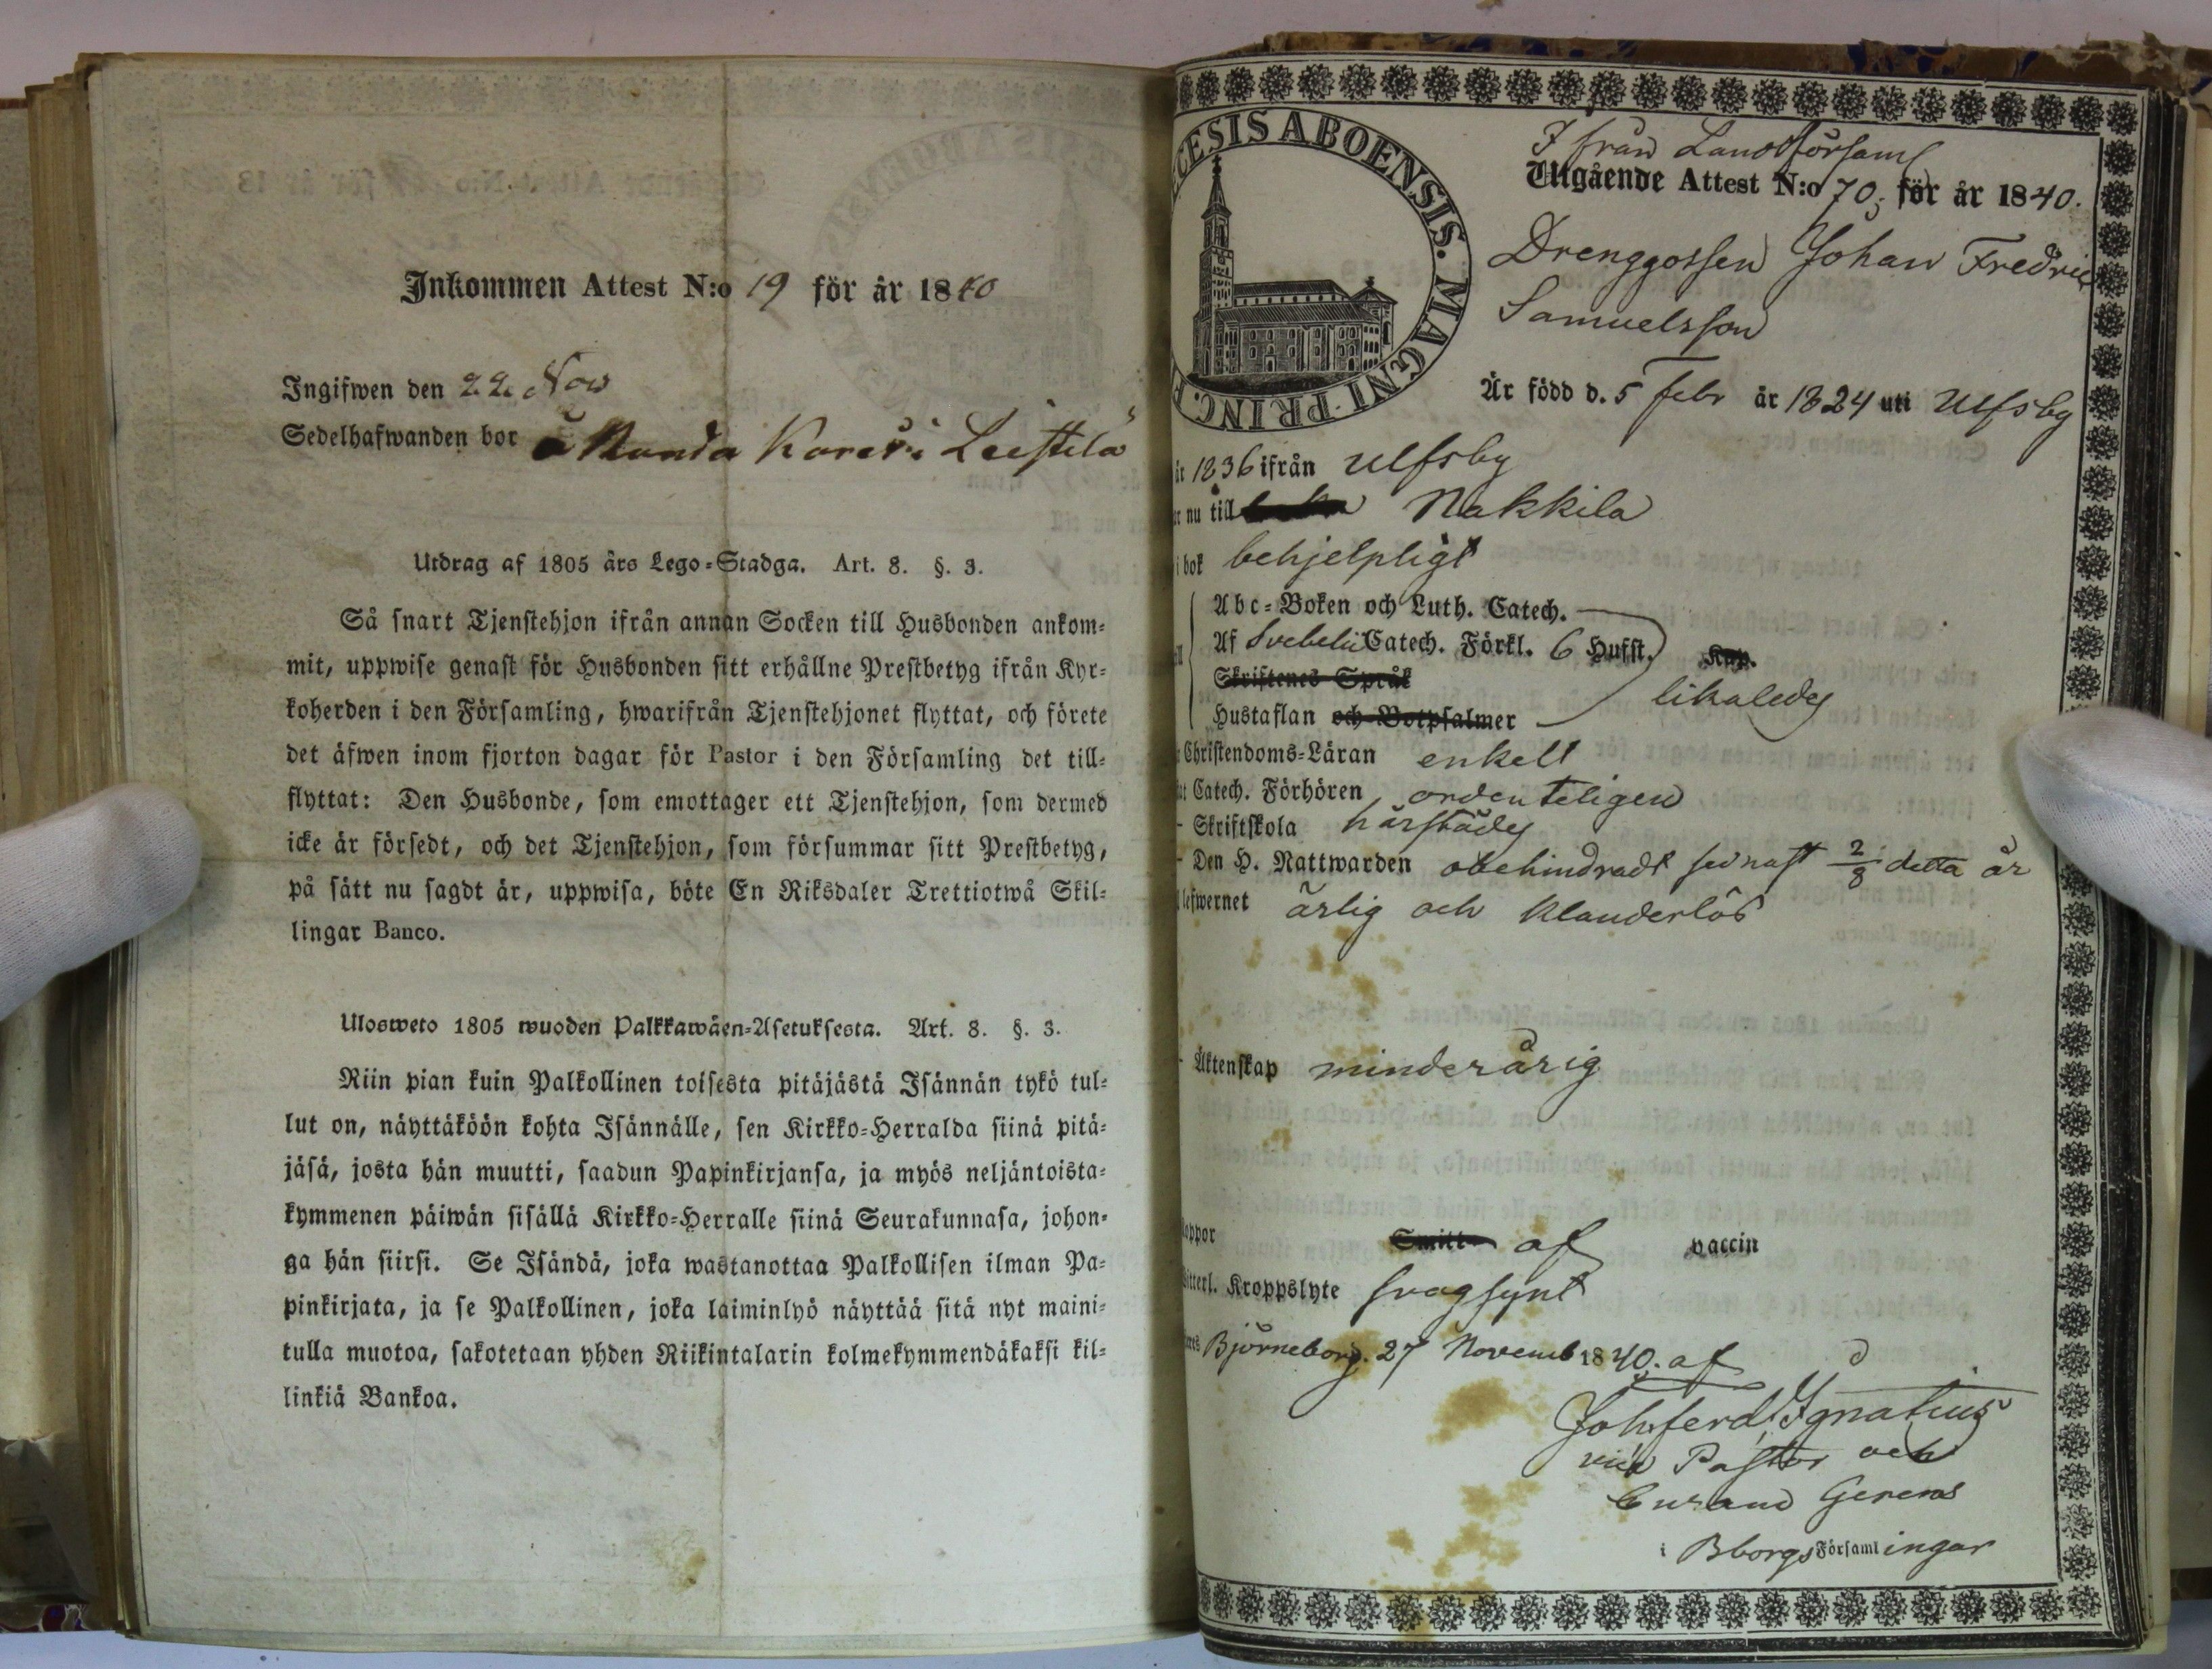 Inkommen Attest N:o 19 för år 1840
Ingifwen den 22 Nov
Sedelhafwanden bor å Leistilä
Utdrag af 1805 års Lego-Stadga. Art. 8. §. 3.
Så snart Tjenstehjon ifrån annan Socken till Husbonden ankom-
mit, uppwise genast för Husbonden sitt erhållne Prestbetyg ifrån Kyr-
koherden i den Församling, hwarifrån Tjenstehjonet flyttat, och förete
det äfwen inom fjorton dagar för Pastor i den Församling det till-
flyttat: Den Husbonde, som emottager ett Tjenstehjon, som dermed
icke är försedt, och det Tjenstehjon, som försummar sitt Prestbetyg,
på sätt nu sagdt är, uppwisa, böte En Riksdaler Trettiotwå Skil-
lingar Banco.
Ulosweto 1805 wuoden Palkkawäen-Asetuksesta. Art. 8. §. 3.
Niin pian kuin Palkollinen toisesta pitäjästä Isännän tykö tul-
lut on, näyttäköön kohta Isännälle, sen Kirkko-Herralda siinä pitä-
jäsä, josta hän muutti, saadun Papinkirjansa, ja myös neljäntoista-
kymmenen päiwän sisällä Kirkko-Herralle siinä Seurakunnasa, johon-
ga hän siirsi. Se Isändä, joka wastanottaa Palkollisen ilman Pa-
pinkirjata, ja se Palkollinen, joka laiminlyö näyttää sitä nyt maini-
tulla muotoa, sakotetaan yhden Riikintalarin kolmekymmendäkaksi kil-
linkiä Bankoa.
CESIS ABOENSIS. MAGNI PRINC. F
Ifrån Landsförsaml
Utgående Attest N:o 70; för år 1840.
Drenggossen Johan Fredric
Samuelsson
Är född d. 5 Febr år 1824 uti Ulfsby
år 1836 ifrån Ulfsby
nu till Nakkila
i bok behjelpligt
Abc-Boken och Luth. Catech.
Af Svebelii Catech. Förkl. 6 Hufst. Kap.
Skriftenes Språk
likaledes
Hustaflan och Botpsalmer
Christendoms-Läran enkelt
Catech. Förhören ordenteligen
Skriftskola härstädes
Den H. Nattwarden obehindradt sednast 2/8 detta år
lefwernet ärlig och klanderlös
Äktenskap minderårig
koppor Smitt af vaccin
Kroppslyte svagsynt
Björneborg. 27 Novemb 1840. af
Joh. Ferd. Ignatius
vice Pastor och
Curam Gerens
i Bborgs Församlingar